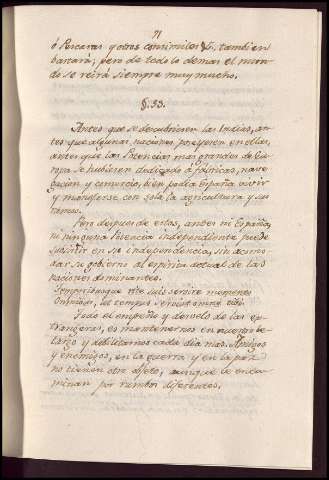 71
ó Pescaras y otros consimiles &c. tambien
bastará; pero de todo lo demas el mun-
do se reirá siempre muy mucho.
§. 53.
Antes que se descubriesen las Indias, an-
tes que algunas naciones poseyesen en ellas,
antes que las Potencias mas grandes de Eu-
ropa se hubiesen dedicado á fábricas, nave-
gacion y comercio, bien podia España vivir
y manejarse con sola la agricultura y sus
rentas.
Pero despues de estas, andes ni España,
ni ninguna Potencia independiente puede
subsistir en su independencia, sin acomo-
dar su gobierno al espiritu actual de las
naciones dominantes.
Temporibusque rite suis servire memento
Omnibus, let tempus serviet omne tibi.
Todo el empeño y desvelo de las ex-
trangeras, es mantenernos en nuestro le-
targo y debilitarnos cada dia mas. Amigos
y enemigos, en la guerra y en la paz
no tienen otro objeto, aunque le enca-
minan por rumbos diferentes.